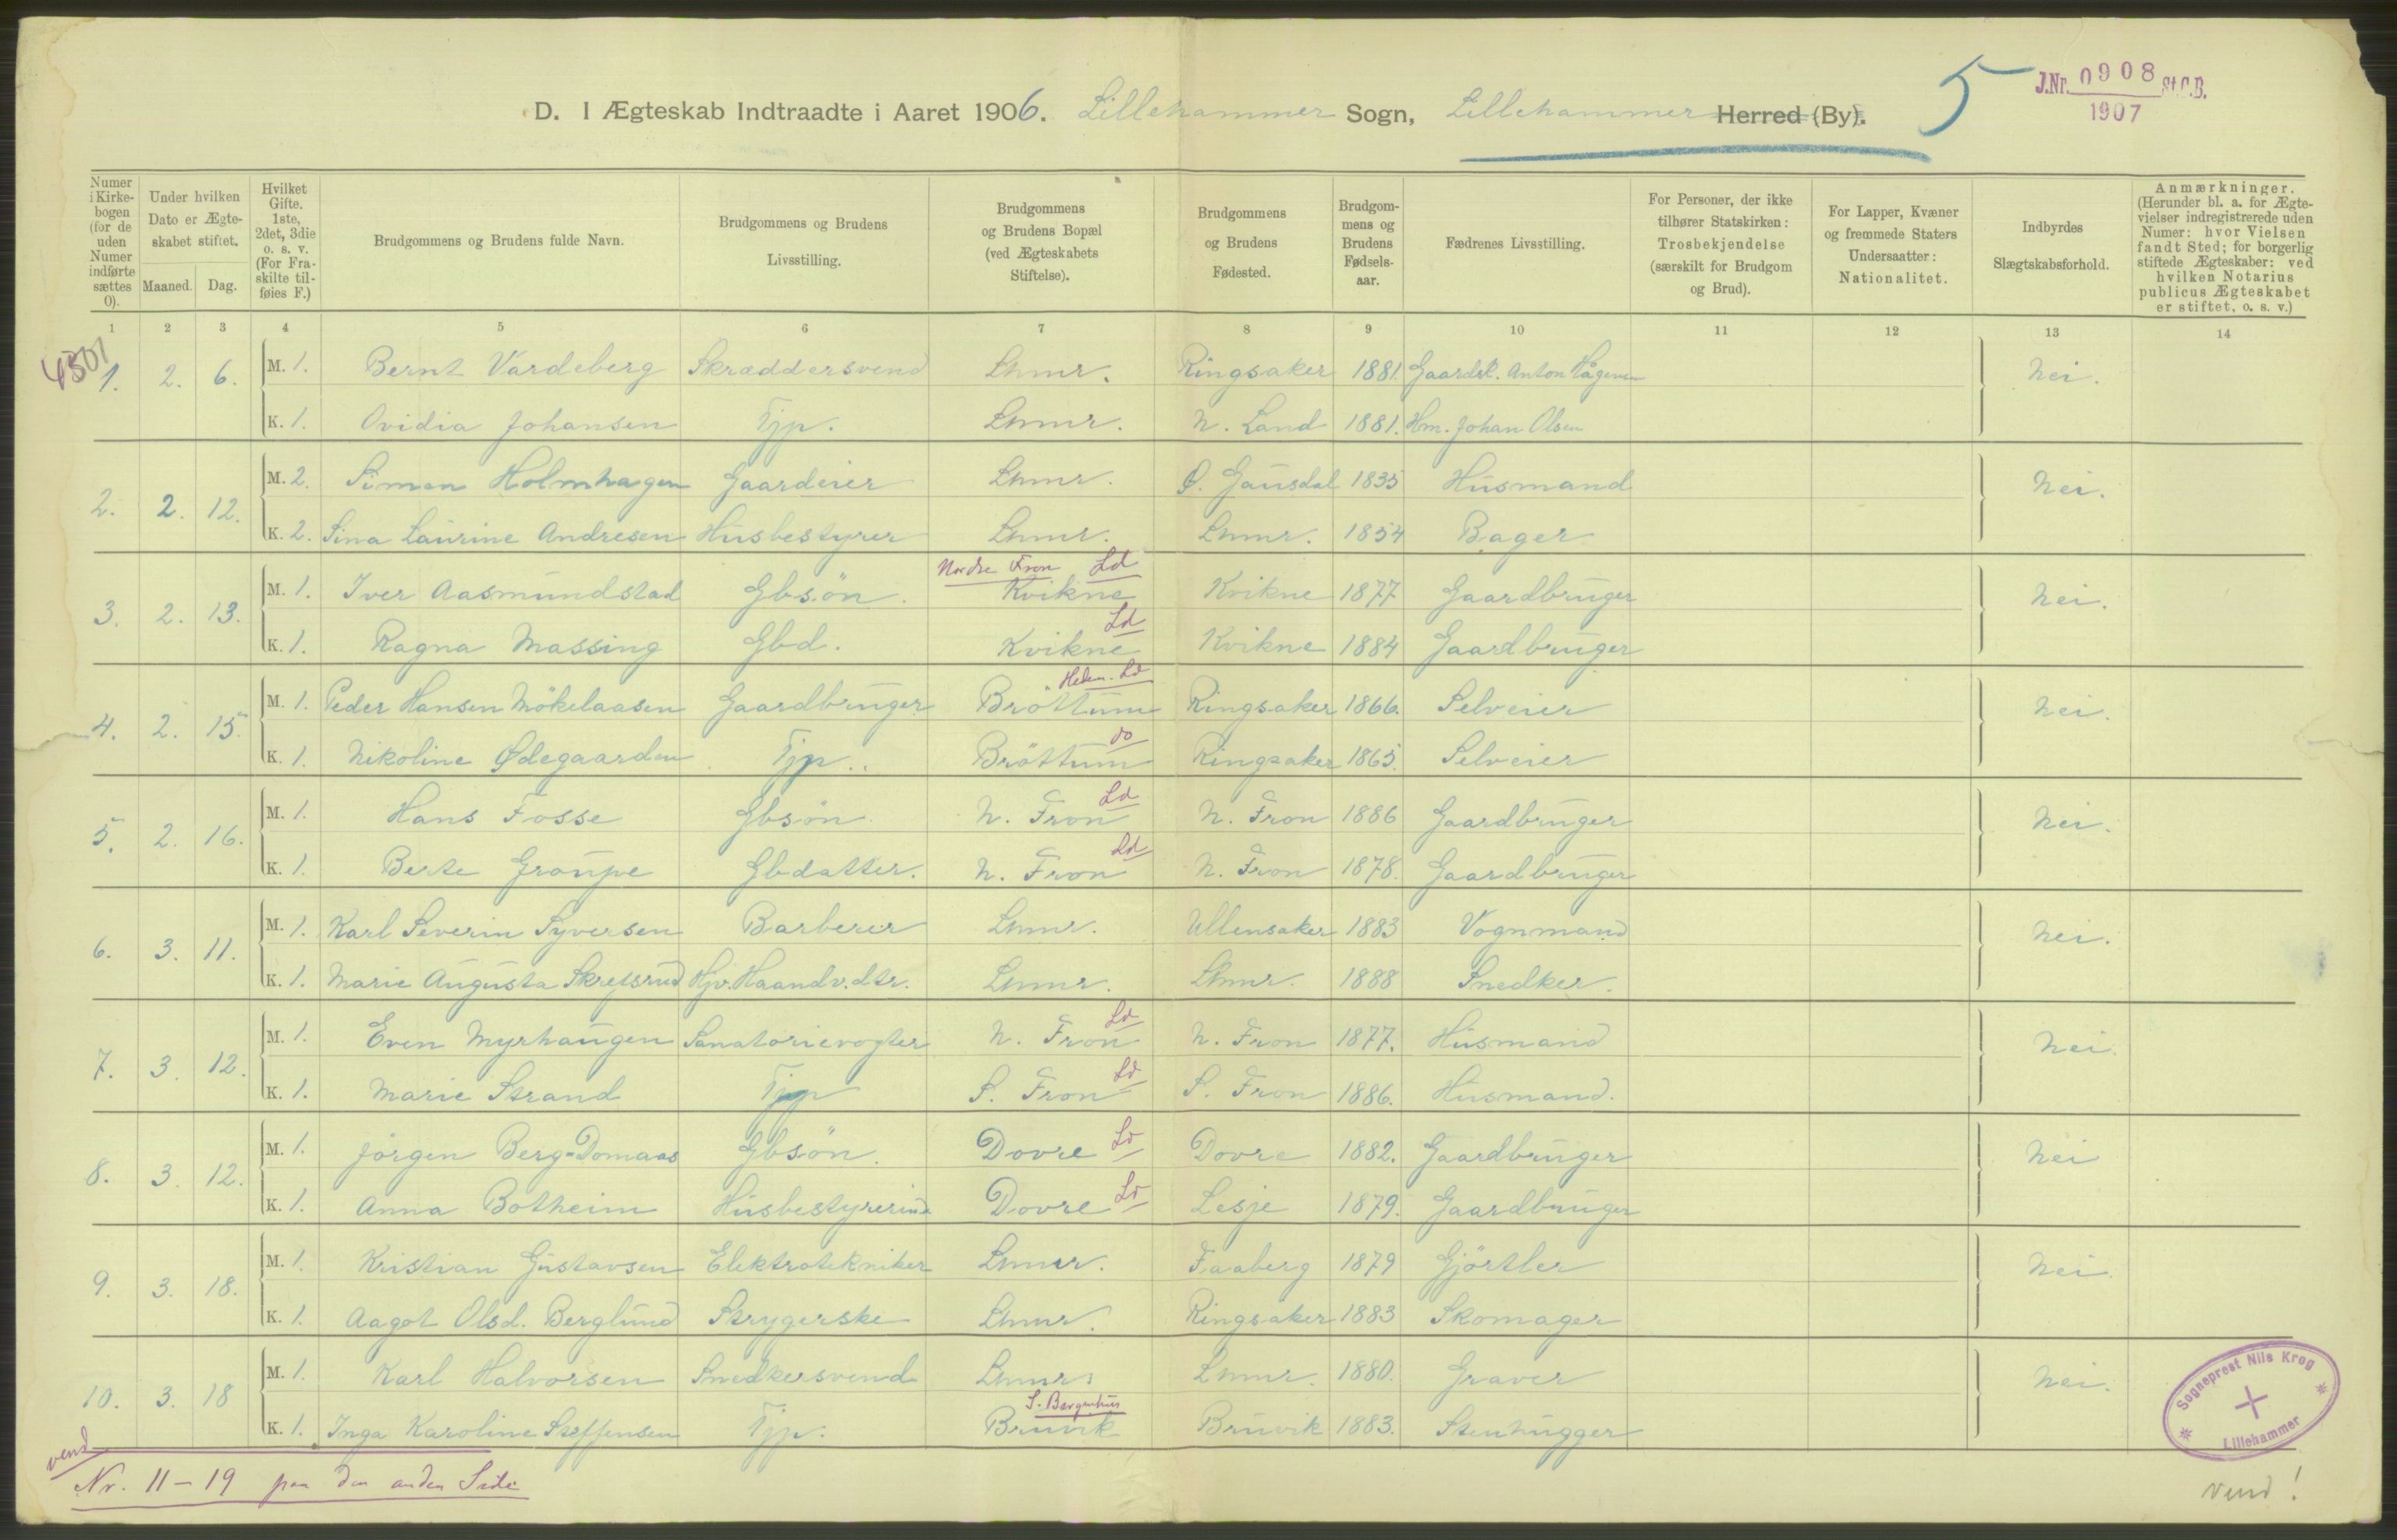 D. I Ægteskab Indtraadte i Aaret 1906. Lillehammer Sogn, Lillehammer Herred (By).
5
J.Nr. 0908 St.C.B.
1907
Numer i Kirkebogen (for de uden Numer indførte sættes 0).
Under hvilken Dato er Ægteskabet stiftet.
Maaned. Dag.
Hvilket Gifte. 1ste, 2det, 3die o. s. v. (For Fraskilte tilføies F.)
Brudgommens og Brudens fulde Navn.
Brudgommens og Brudens Livsstilling.
Brudgommens og Brudens Bopæl (ved Ægteskabets Stiftelse).
Brudgommens og Brudens Fødested.
Brudgommens og Brudens Fødselsaar.
Fædrenes Livsstilling.
For Personer, der ikke tilhører Statskirken: Trosbekjendelse (særskilt for Brudgom og Brud).
For Lapper, Kvæner og fremmede Staters Undersaatter: Nationalitet.
Indbyrdes Slægtskabsforhold.
Anmærkninger. (Herunder bl. a. for Ægtevielser indregistrerede uden Numer: hvor Vielsen fandt Sted; for borgerlig stiftede Ægteskaber: ved hvilken Notarius publicus Ægteskabet er stiftet, o. s. v.)
1 2 3 4 5 6 7 8 9 10 11 12 13 14
4301
1. 2. 6. M. 1. Bernt Vardeberg Skræddersvend Lhmr. Ringsaker 1881. Gaardbr. Anton Hågensen Nei.
K. 1. Ovidia Johansen Tjp. Lhmr. N. Land 1881. Hm. Johan Olsen
2. 2. 12. M. 2. Simen Holmhagen Gaardeier Lhmr. Ø. Gausdal 1835 Husmand Nei.
K. 2. Sina Laurine Andresen Husbestyrer Lhmr. Lhmr. 1854 Bager
Nordre Fron Ld
3. 2. 13. M. 1. Iver Aasmundstad Gbsön. Kvikne Kvikne 1877 Gaardbruger Nei.
Ld
K. 1. Ragna Massing Gbd. Kvikne Kvikne 1884 Gaardbruger
Hedm. Ld
4. 2. 15. M. 1. Peder Hansen Mökelaasen Gaardbruger Bröttum Ringsaker 1866. Selveier Nei.
do
K. 1. Nikoline Ødegaarden Tjp. Bröttum Ringsaker 1865. Selveier
Ld
5. 2. 16. M. 1. Hans Fosse Gbsön. N. Fron N. Fron 1886 Gaardbruger Nei.
Ld
K. 1. Berte Graupe Gbdatter. N. Fron N. Fron 1878. Gaardbruger
6. 3. 11. M. 1. Karl Severin Syversen Barberer Lhmr. Ullensaker 1883 Vognmand Nei.
K. 1. Marie Augusta Skrefsrud Hjv. Haandv. dtr. Lhmr. Lhmr. 1888 Snedker.
Ld
7. 3. 12. M. 1. Even Myrhaugen Sanatorievogter N. Fron N. Fron 1877. Husmand Nei.
Ld
K. 1. Marie Strand Tjp S. Fron S. Fron 1886. Husmand.
8. 3. 12. M. 1. Jörgen Berg-Domaas Gbsön. Dovre Ld Dovre 1882. Gaardbruger Nei
K. 1. Anna Botheim Husbestyrerinde Dovre Ld Lesje 1879. Gaardbruger
9. 3. 18. M. 1. Kristian Gustavsen Elektrotekniker Lhmr. Faaberg 1879 Gjörtler Nei.
K. 1. Aagot Olsd. Berglund Strygerske Lhmr. Ringsaker 1883 Skomager
10. 3. 18 M. 1. Karl Halvorsen Snedkersvend Lhmr. Lhmr. 1880. Graver Nei.
S. Bergenhus
K. 1. Inga Karoline Steffensen Tjp. Bruvik Bruvik 1883. Stenhugger
Sogneprest Nils Krog Lillehammer
vend
Nr. 11 - 19 paa den anden Side
vend!